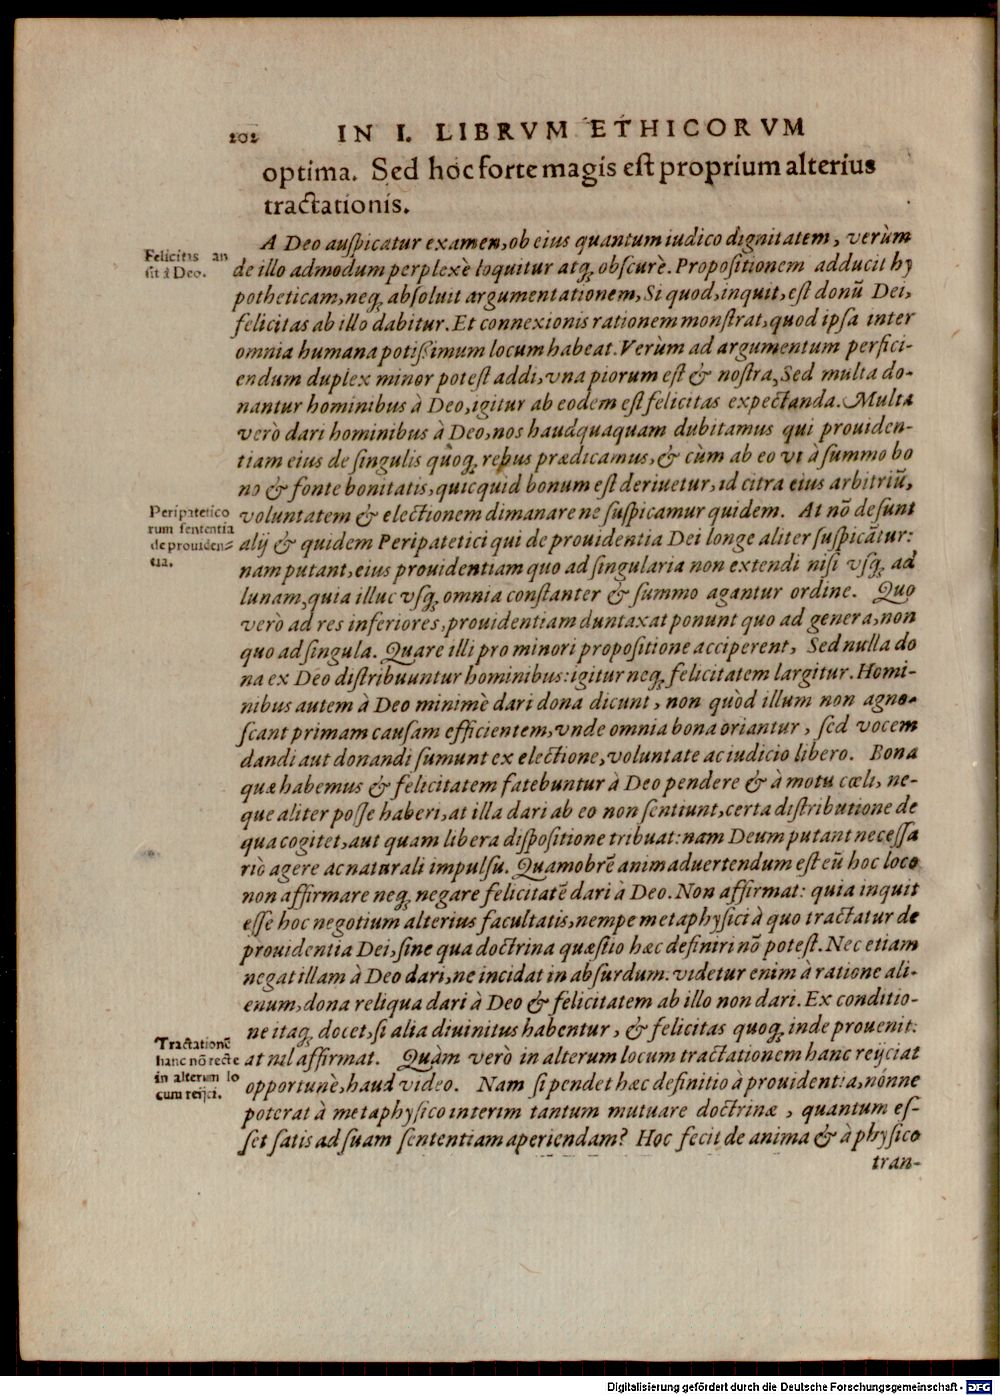 202 IN I. LIBRVM ETHICORVM
optima. Sed hoc forte magis est proprium alterius
tractationis.
Felicitas an
sit à Deo.
A Deo auspicatur examen, ob eius quantum iudico dignitatem, verùm
de illo admodum perplexè loquitur atq; obscurè. Propositionem adducit hy
potheticam, neq; absoluit argumentationem, Si quod, inquit, est donũ Dei,
felicitas ab illo dabitur. Et connexionis rationem monstrat, quod ipsa inter
omnia humana potissimum locum habeat. Verùm ad argumentum perfici-
endum duplex minor potest addi, vna piorum est & nostra, Sed multa do-
nantur hominibus à Deo, igitur ab eodem est felicitas expectanda. Multa
verò dari hominibus à Deo, nos haudquaquam dubitamus qui prouiden-
tiam eius de singulis quoq; rebus prædicamus, & cùm ab eo vt à summo bo
no & fonte bonitatis, quicquid bonum est deriuetur, id citra eius arbitriũ,
Peripatetico
rum sententia
de prouiden-
tia.
voluntatem & electionem dimanare ne suspicamur quidem. At nõ desunt
alij & quidem Peripatetici qui de prouidentia Dei longe aliter suspicãtur:
nam putant, eius prouidentiam quo ad singularia non extendi nisi vsq; ad
lunam, quia illuc vsq; omnia constanter & summo agantur ordine. Quo
verò ad res inferiores, prouidentiam duntaxat ponunt quo ad genera, non
quo ad singula. Quare illi pro minori propositione acciperent, Sed nulla do
na ex Deo distribuuntur hominibus: igitur neq; felicitatem largitur. Homi-
nibus autem à Deo minimè dari dona dicunt, non quòd illum non agno-
scant primam causam efficientem, vnde omnia bona oriantur, sed vocem
dandi aut donandi sumunt ex electione, voluntate ac iudicio libero. Bona
quæ habemus & felicitatem fatebuntur à Deo pendere & à motu cœli, ne-
que aliter posse haberi, at illa dari ab eo non sentiunt, certa distributione de
qua cogitet, aut quam libera dispositione tribuat: nam Deum putant necessa
riò agere ac naturali impulsu. Quamobrẽ animaduertendum est eũ hoc loco
non affirmare neq; negare felicitatẽ dari à Deo. Non affirmat: quia inquit
esse hoc negotium alterius facultatis, nempe metaphysici à quo tractatur de
prouidentia Dei, sine qua doctrina quæstio hæc definiri nõ potest. Nec etiam
negat illam à Deo dari, ne incidat in absurdum: videtur enim à ratione ali-
enum, dona reliqua dari à Deo & felicitatem ab illo non dari. Ex conditio-
ne itaq; docet, si alia diuinitus habentur, & felicitas quoq; inde prouenit:
Tractationẽ
hanc nõ recte
in alterum lo
cum reijci.
at nil affirmat. Quàm verò in alterum locum tractationem hanc reijciat
opportunè, haud video. Nam si pendet hæc definitio à prouidentia, nónne
poterat à metaphysico interim tantum mutuare doctrinæ, quantum es-
set satis ad suam sententiam aperiendam? Hoc fecit de anima & à physico
tran-
Digitalisierung gefördert durch die Deutsche Forschungsgemeinschaft - DFG